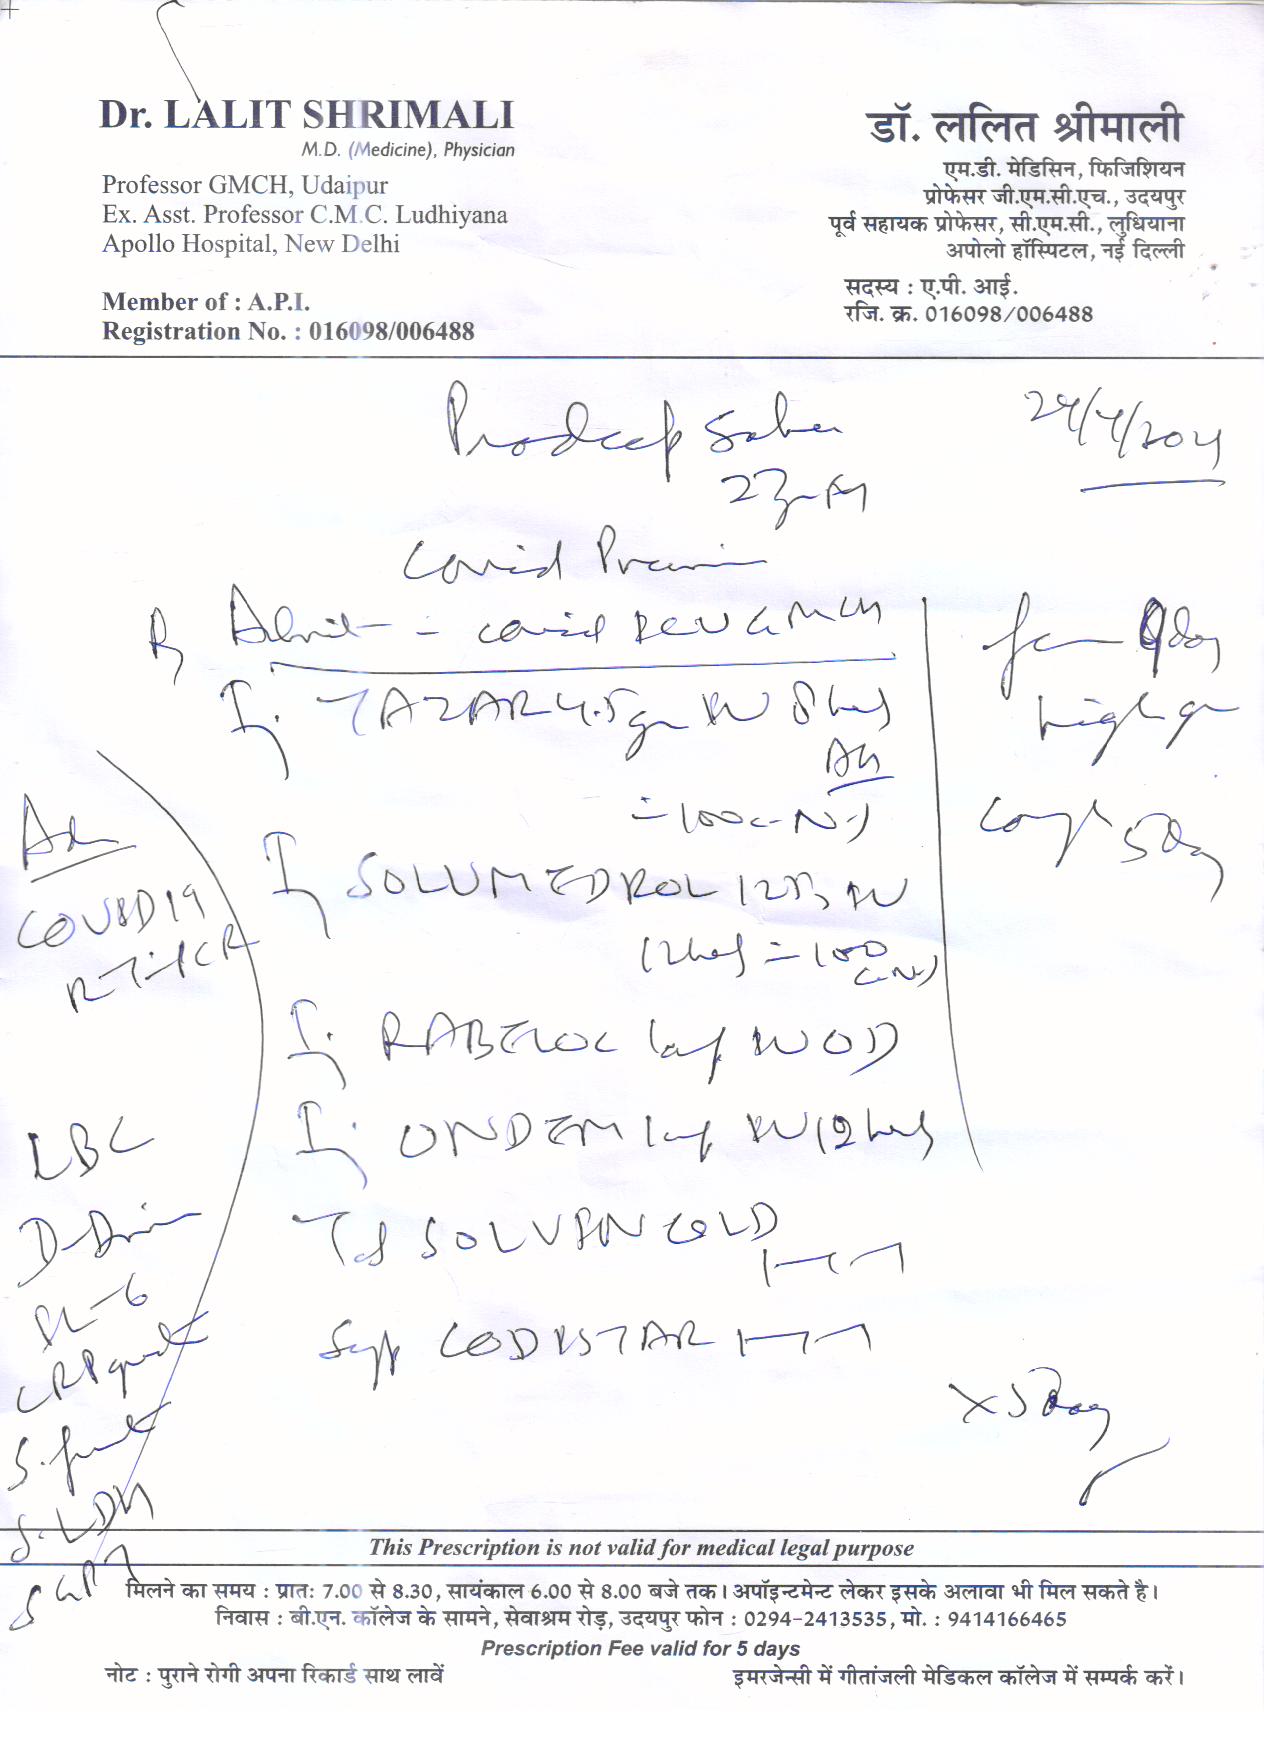 Dr. LALIT SHRIMALI
M.D. (Medicine), Physician
Professor GMCH, Udaipur
Ex. Asst. Professor C.M.C. Ludhiyana
Apollo Hospital, New Delhi
Member of : A.P.I.
Registration No. : 016098/006488
डॉ. ललित श्रीमाली
एम.डी. मेडिसिन, फिजिशियन
प्रोफेसर जी.एम.सी.एच., उदयपुर
पूर्व सहायक प्रोफेसर, सी.एम.सी., लुधियाना
अपोलो हॉस्पिटल, नई दिल्ली
सदस्य : ए.पी. आई.
रजि. क्र. 016098/006488
Pradeep
Covid
Admit - covid GMCH
Inj. TAZAR 4.5gm IV 8 hrly
= 100 c NS
Inj SOLUMEDROL 125 IV
12 hrly = 100
c NS
Inj RABELOC IV OD
Inj ONDEM IV 12 hrly
Tab SOLVIN COLD
1-1-1
Syp CODISTAR 1-1-1
x 5 day
high gr
Cough 5 day
Adv
COVID 19
RT-PCR
D-Dimer
IL-6
CRP quanti
S. LDH
SGPT
This Prescription is not valid for medical legal purpose
मिलने का समय : प्रातः 7.00 से 8.30, सायंकाल 6.00 से 8.00 बजे तक। अपॉइन्टमेन्ट लेकर इसके अलावा भी मिल सकते है।
निवास : बी.एन. कॉलेज के सामने, सेवाश्रम रोड़, उदयपुर फोन : 0294-2413535, मो. : 9414166465
Prescription Fee valid for 5 days
नोट : पुराने रोगी अपना रिकार्ड साथ लावें
इमरजेन्सी में गीतांजली मेडिकल कॉलेज में सम्पर्क करें।